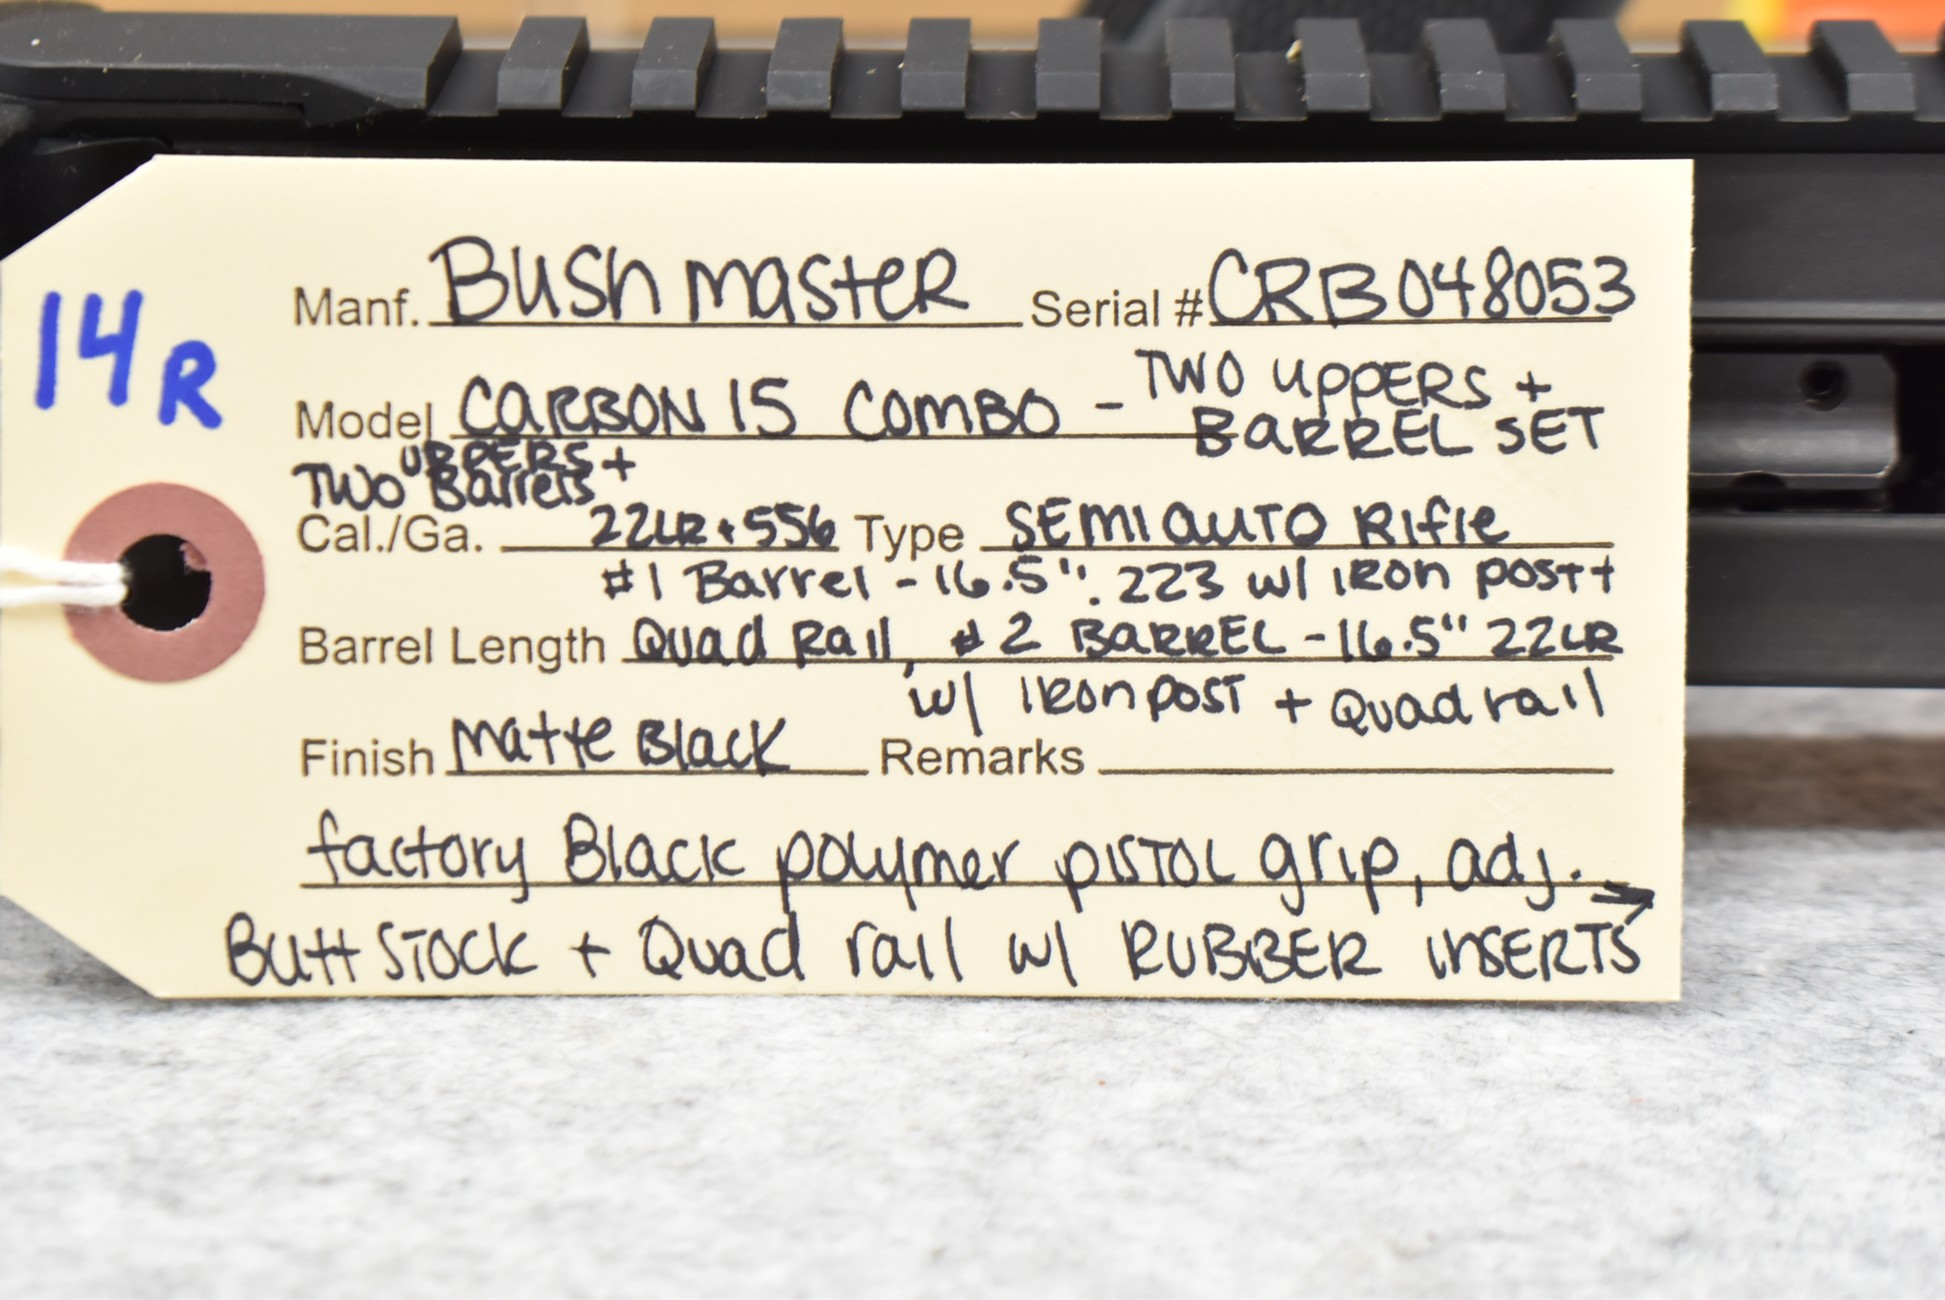 14R
Manf. Bushmaster Serial # CRB048053
Model CARBON 15 COMBO - TWO UPPERS +
BARREL SET
TWO UPPERS +
Barrels
Cal./Ga. 22LR + 556 Type SEMI AUTO Rifle
#1 Barrel - 16.5" .223 w/ IRON POST +
Barrel Length Quad Rail, #2 BARREL - 16.5" 22LR
w/ IRON POST + Quad rail
Finish Matte Black Remarks
factory Black polymer PISTOL grip, adj. →
Butt STOCK + Quad rail w/ RUBBER INSERTS